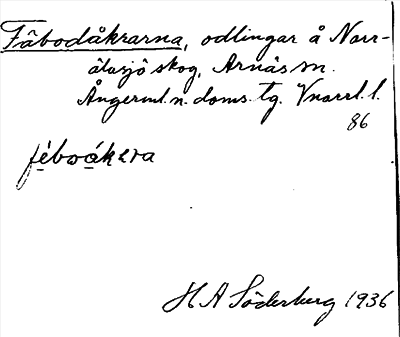 Fäbodåkrarna, odlingar å Norr-
ålasjö skog, Arnäs sn.
Ångerml. n. doms. Tg. Vnorrl. l.
86
fébwåkra
H A Söderberg 1936